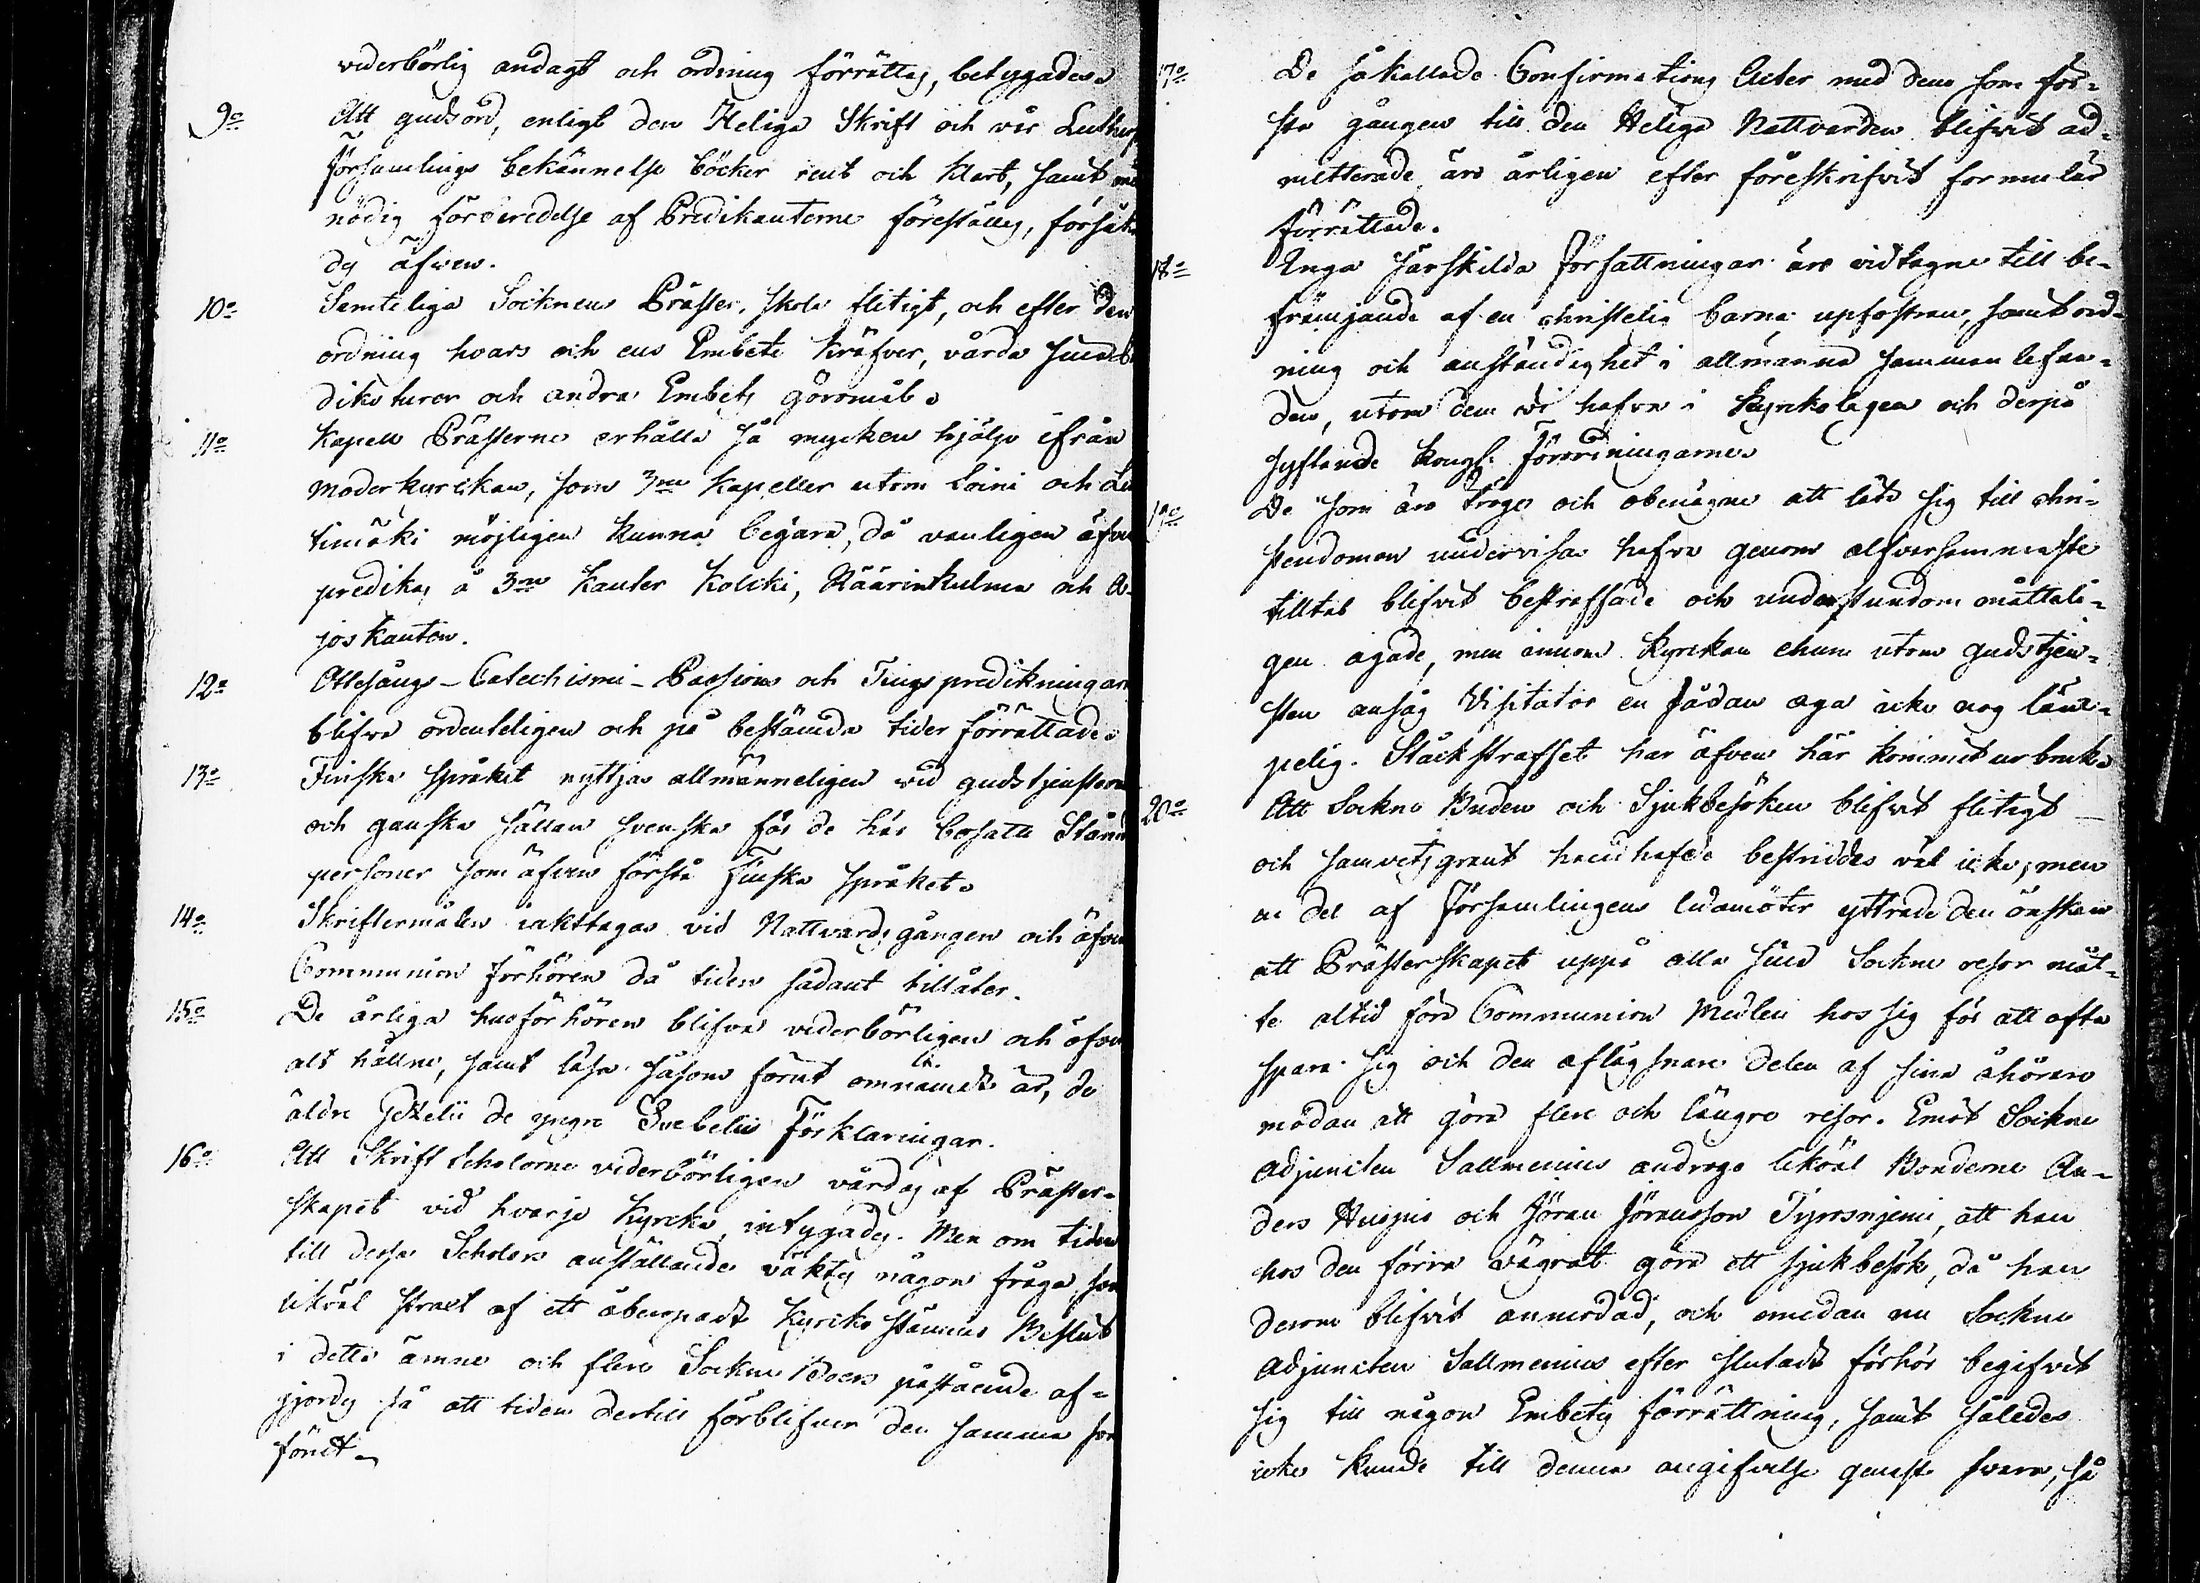 vederbörlig andagt och ordning förrättas, betygades.
9o Att guds ord, enligt den Heliga Skrift och vår Luthers
Församlings bekännelse böcker rent och klart, samt med
nödig förberedelse af Predikanterne föreställes, försäkra
des äfven.
10o Samteliga Socknens Präster, skola flitigt, och efter den
ordning hvars och ens Embete kräfver, vårda sina
dikoturer och andra Embets göromål.
11o Kapell Prästerne erhålla så mycken hjälp ifrån
Moderkyrckan, som 3ne Kapeller utom Soini och Le
timäki möjligen kunna begära, då vanligen äfven
predikas å 3ne Kanter Kolcki, Räärinkulma och
jos kanten.
12o Ottesångs-Catechismi-Passions och Tings predikningar
blifva ordenteligen och på bestämda tider förrättade.
13o Finska språket nyttjas allmänneligen vid gudstjensten
och ganska sällan svenska för de här bosatte Stånds
personer som äfven förstå Finska språket.
14o Skriftermålen iakttagas vid Nattvards gången och äfven
Communion förhören då tiden sådant tillåter.
15o De årliga husförhören blifva vederbörligen och öfver
alt hållne, samt läsa såsom förut omnämdt är, de
äldre Gezelii de yngre Svebelii Förklaringar.
16o Att Skrift Scholorne vederbörligen vårdas af Präster-
skapet vid hvarje Kyrcka, intygades. Men om tiden
till dessa Scholors anställande väktes någon fråga, som
likväl straxt af ett åberopadt Kyrko stämmo Beslut
i detta ämne och flere Sockne Boers påstående af-
gjordes så att tiden dertill förblifver den samma som
förut.
17o De så kallade Confirmations Acter med dem som för-
sta gången till den Heliga Nattvarden blifvit ad-
mitterade äro årligen efter föreskrifvit formulär
förrättade.
18o Inga särskilda Författningar äro vidtagne till be-
främjande af en christelig barna upfostran, samt ord-
ning och anständighet i allmänna sammanlefvan-
den, utom dem vi hafva i Kyrckolagen och derpå
syftande Kongl. Förordningarne.
19o De som äro tröge och obenägne att låta sig till chri-
stendomen undervisa hafva genom alfvarsammaste
tilltal blifvit bestraffade och understundom måtteli-
gen agade, men innom Kyrckan ehuru utom gudstjen-
sten ansåg Visitator en sådan aga icke nog läm-
pelig. Stockstraffet har äfven här kommit ur bruk.
20o Att Sockne Buden och Sjukbesöken blifvit flitigt
och samvetsgrant handhafde bestriddes väl icke, men
en del af Församlingens ledamöter yttrade den önskan
att Prästerskapet uppå alla sina Sockne resor mått-
te altid föra Communion Medlen hos sig för att ofta
spara sig och den aflägsnare delen af sina åhörare
mödan att göra flere och längre resor. Emot Sockne
Adjuncten Sallmenius androgo likväl Bonderne An-
ders Huopio och Jöran Jöransson Tyrosnjemi, att han
hos den förra vägrat göra ett sjukbesök, då han
derom blifvit anmodad, och emedan nu Sockne
Adjuncten Sallmenius efter slutadt förhör begifvit
sig till någon Embetes förrättning, samt således
icke kunde till denna angifvelse genast svara, så